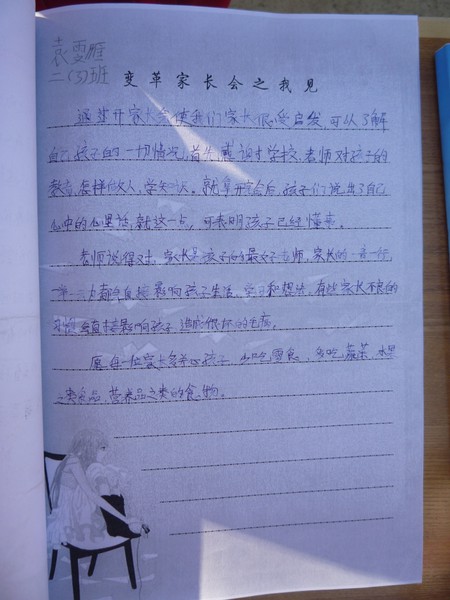 袁雯雁
二(3)班 变革家长会之我见
通过开家长会使我们家长很受启发,可以了解
自己孩子的一切情况,首先感谢学校,老师对孩子的
教育,怎样做人,学知识。就拿开完会后,孩子们说出了自己
心中的心里话,就这一点,可表明孩子已经懂事。
老师说得对,家长是孩子的最好老师,家长的一言一行,
一举一动都会直接影响孩子生活,学习和想法,有些家长不良的
习惯会直接影响孩子,造成很坏的毛病。
愿每一位家长多关心孩子,少吃零食,多吃蔬菜,水果
之类食品,营养品之类的食物。